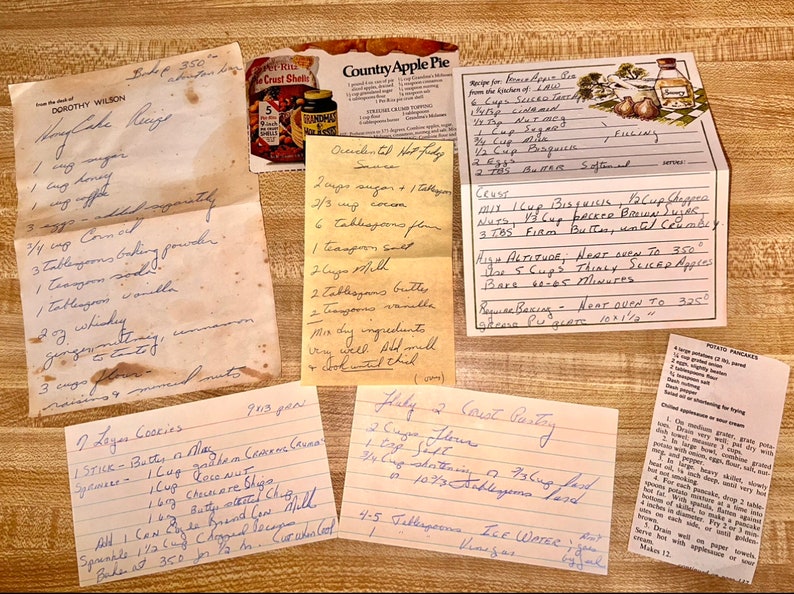 Bake @ 350°-
from the desk of
DOROTHY WILSON
Honey Cake Recipe
1 cup sugar
1 cup honey
1 cup coffee
3 eggs - added separately
3/4 cup Corn oil
3 tablespoons baking powder
1 teaspoon soda
1 tablespoon vanilla
2 oz whiskey
ginger, nutmeg, cinnamon
to taste
3 cups flour -
raisins & minced nuts
Pet-Ritz
Pie Crust Shells
5
Pet-Ritz
9-inch
PIE CRUST
SHELLS
GRANDMA'S
MOLASSES
Country Apple Pie
STREUSEL CRUMB TOPPING
Occidental Hot Fudge
Sauce
2 cups sugar + 1 tablespoon
2/3 cup cocoa
6 tablespoons flour
1 teaspoon salt
2 cups Milk
2 tablespoons butter
2 teaspoons vanilla
Mix dry ingredients
very well. Add milk
& cook until thick
(over)
Recipe for: Apple Pie
from the kitchen of: LAW
6 Cups Sliced Tart Ap
1 1/4 Tsp Cinnamon
1/4 Tsp Nutmeg
1 Cup Sugar
3/4 Cup Milk
1/2 Cup Bisquick
2 Eggs
2 TBS Butter Softened
Filling
serves:
Savory
Crust
Mix 1 Cup Bisquick, 1/2 Cup Chopped
Nuts, 1/3 Cup Packed Brown Sugar
3 TBS Firm Butter, until Crumbly.
High Altitude; Heat oven to 350°
Use 5 Cups Thinly Sliced Apples
Bake 60-65 Minutes
Regular Baking - Heat oven to 325°
Grease Plate 10x1 1/2"
9x13 pan
7 Layer Cookies
1 Stick - Butter or Marg
Sprinkle - 1 Cup graham Cracking Crumbs
1 Cup Coconut
1 6oz Chocolate Chips
1 6oz Butterscotch Chips
Add 1 Can Eagle Brand Con Milk
Sprinkle 1 1/2 Cup Chopped Pecans
Bake at 350 for 1/2 hr. Cut when Cool
Flaky 2 Crust Pastry
2 Cups flour
1 tsp Salt
3/4 Cup shortening or 2/3 Cup lard
or 10 2/3 Tablespoons lard
4-5 Tablespoons Ice Water
1 Vinegar
by feel
POTATO PANCAKES
4 large potatoes (2 lb), pared
1/4 cup grated onion
2 eggs, slightly beaten
2 tablespoons flour
3/4 teaspoon salt
Dash nutmeg
Dash pepper
Salad oil or shortening for frying
Chilled applesauce or sour cream
1. On medium grater, grate pota-
toes. Drain very well, pat dry with
dish towel; measure 3 cups.
2. In large bowl, combine grated
potato with onion, eggs, flour, salt, nut-
meg, and pepper.
3. In large, heavy skillet, slowly
heat oil, 1/8 inch deep, until very hot
but not smoking.
4. For each pancake, drop 2 table-
spoons potato mixture at a time into
hot fat. With spatula, flatten against
bottom of skillet, to make a pancake
4 inches in diameter. Fry 2 or 3 min-
utes on each side, or until golden-
brown.
5. Drain well on paper towels.
Serve hot with applesauce or sour
cream.
Makes 12.